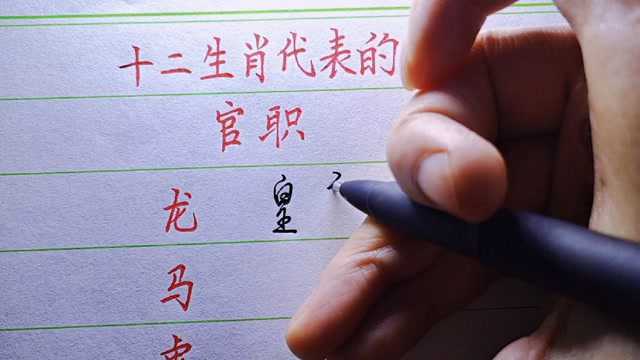 十二生肖代表的
官职
龙 皇
马